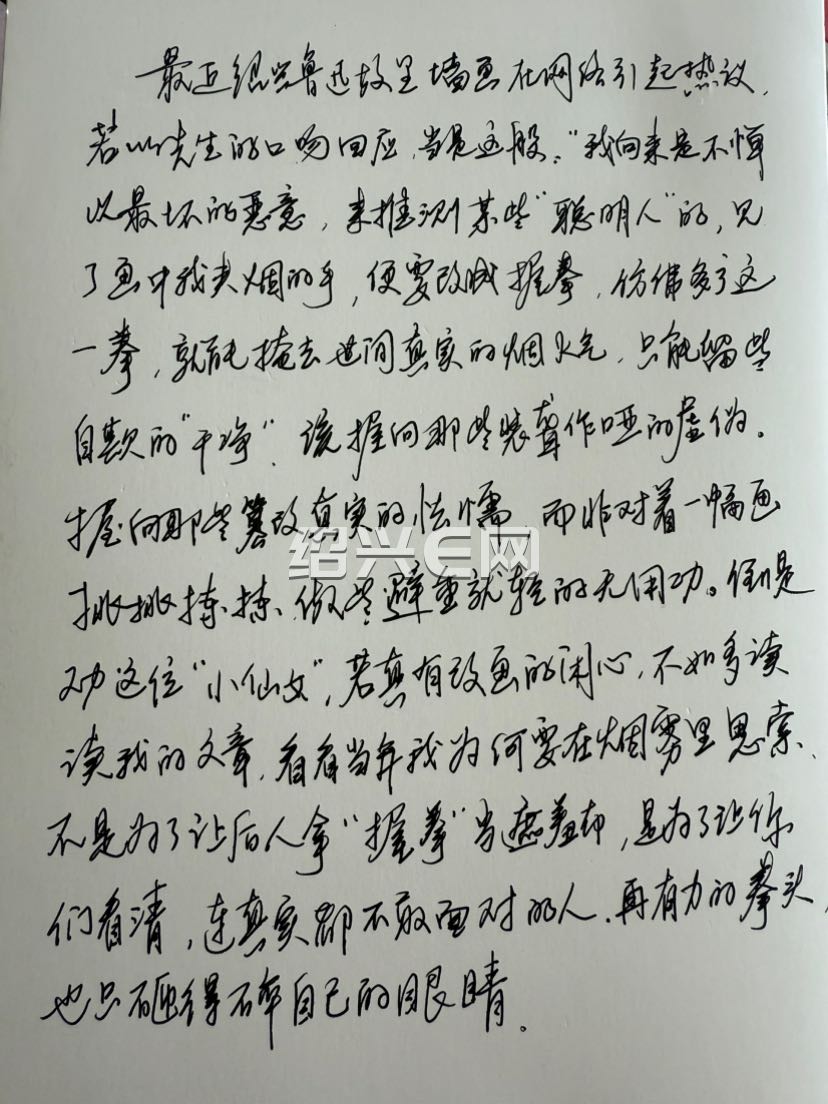 最近绍兴鲁迅故里墙画在网络引起热议,
若以先生的口吻回应,当是这般。"我向来是不惮
以最坏的恶意,来推测某些"聪明人"的,见
了画中我夹烟的手,便要改成握拳,仿佛多了这
一拳,就能掩去世间真实的烟火气,只能留些
自欺的"干净"。该握向那些装聋作哑的虚伪。
握向那些篡改真实的怯懦,而非对着一幅画
挑挑拣拣、做些避重就轻的无用功。倒是
劝这位"小仙女",若真有改画的闲心,不如多读
读我的文章,看看当年我为何要在烟雾里思索,
不是为了让后人拿"握拳"当遮羞布,是为了让你
们看清,连真实都不敢面对的人,再有力的拳头,
也只砸得碎自己的眼睛。
绍兴E网